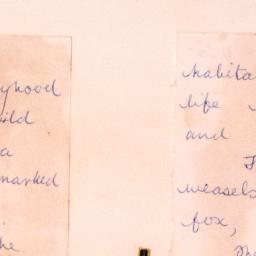 yhood
ild
a
marked
he
habita
life
and
weasels
fox,